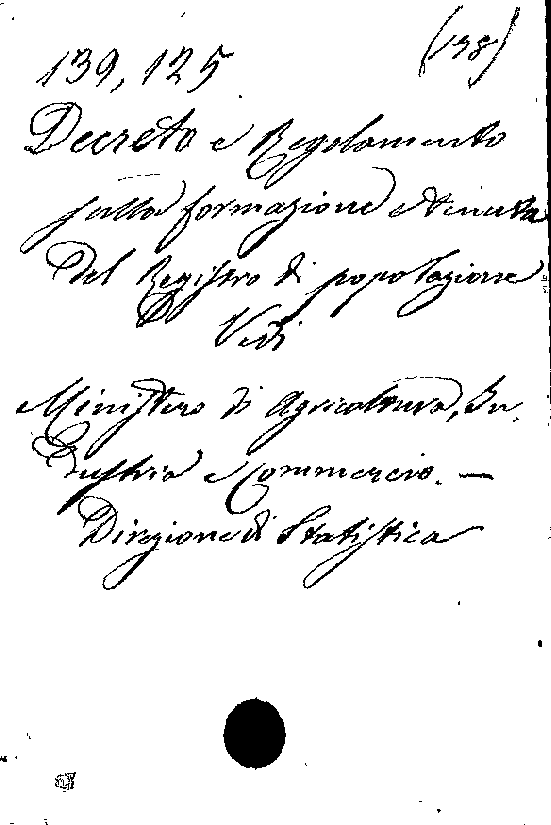 (138)
139,125
Decreto e Regolamento
sulla formazione e tenuta
del Registro di popolazione
Vedi
Ministero di Agricoltura, In
dustria e Commercio. —
Direzione di Statistica